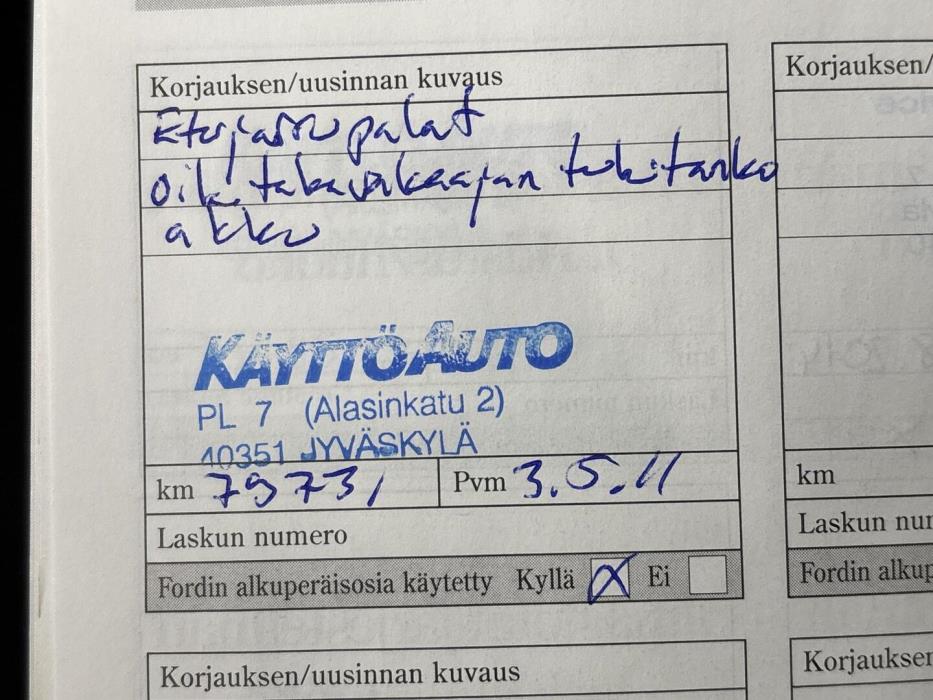 Korjauksen/uusinnan kuvaus
Etujarrupalat
oik. takavakaajan tukitanko
akku
KÄYTTÖAUTO
PL 7 (Alasinkatu 2)
40351 JYVÄSKYLÄ
km 79731
Pvm 3.5.11
Laskun numero
Fordin alkuperäisosia käytetty Kyllä X Ei
Korjauksen/uusinnan kuvaus
Korjauksen/
km
Laskun nu
Fordin alkup
Korjauksen